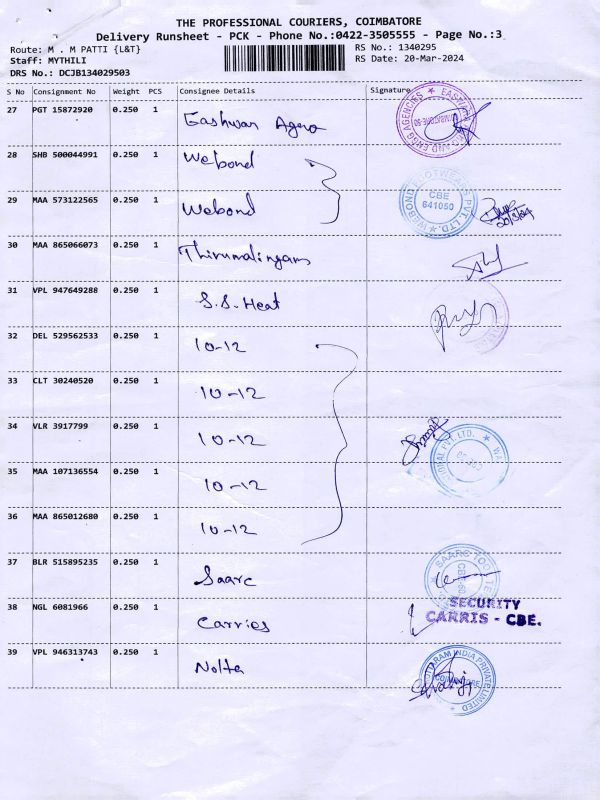 THE PROFESSIONAL COURIERS, COIMBATORE
Delivery Runsheet - PCK - Phone No.:0422-3505555 - Page No.:3
Route: M . M PATTI {L&T} RS No.: 1340295
Staff: MYTHILI RS Date: 20-Mar-2024
DRS No.: DCJB134029503
S No Consignment No Weight PCS Consignee Details Signature
27 PGT 15872920 0.250 1 Eashwar Agero
28 SHB 500044991 0.250 1 Webond
29 MAA 573122565 0.250 1 Webond
CBE
641050
WEBOND FOOTWEARS PVT. LTD.
20/3/24
30 MAA 865066073 0.250 1 Thirumalingam
31 VPL 947649288 0.250 1 S.S. Heat
32 DEL 529562533 0.250 1 10-12
33 CLT 30240520 0.250 1 10-12
34 VLR 3917799 0.250 1 10-12
35 MAA 107136554 0.250 1 10-12
36 MAA 865012680 0.250 1 10-12
37 BLR 515895235 0.250 1 Saarc
38 NGL 6081966 0.250 1 Carries
SECURITY
CARRIS - CBE.
39 VPL 946313743 0.250 1 Nolta
INDIA PRIVATE LIMITED